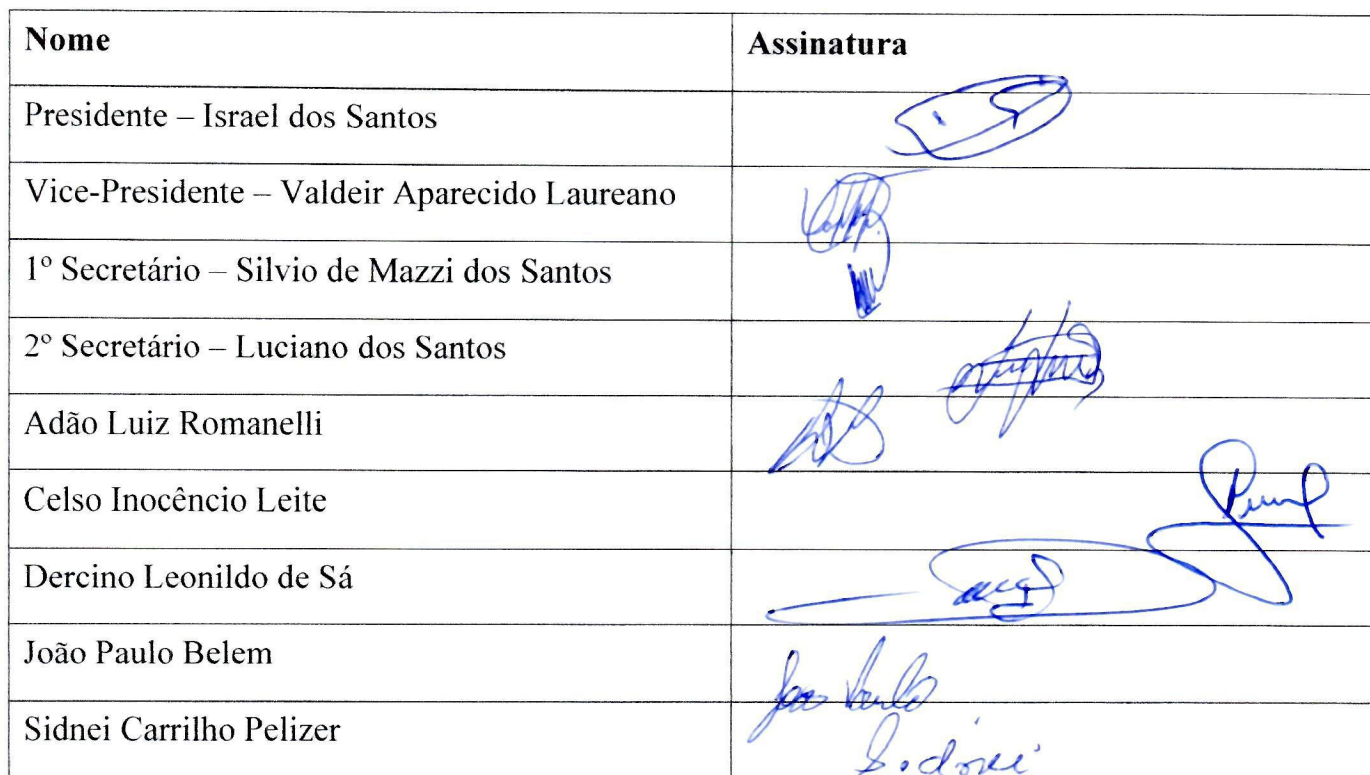 Nome Assinatura
Presidente – Israel dos Santos
Vice-Presidente – Valdeir Aparecido Laureano
1º Secretário – Silvio de Mazzi dos Santos
2º Secretário – Luciano dos Santos
Adão Luiz Romanelli
Celso Inocêncio Leite
Dercino Leonildo de Sá
João Paulo Belem
João Paulo
Sidnei Carrilho Pelizer
Sidnei